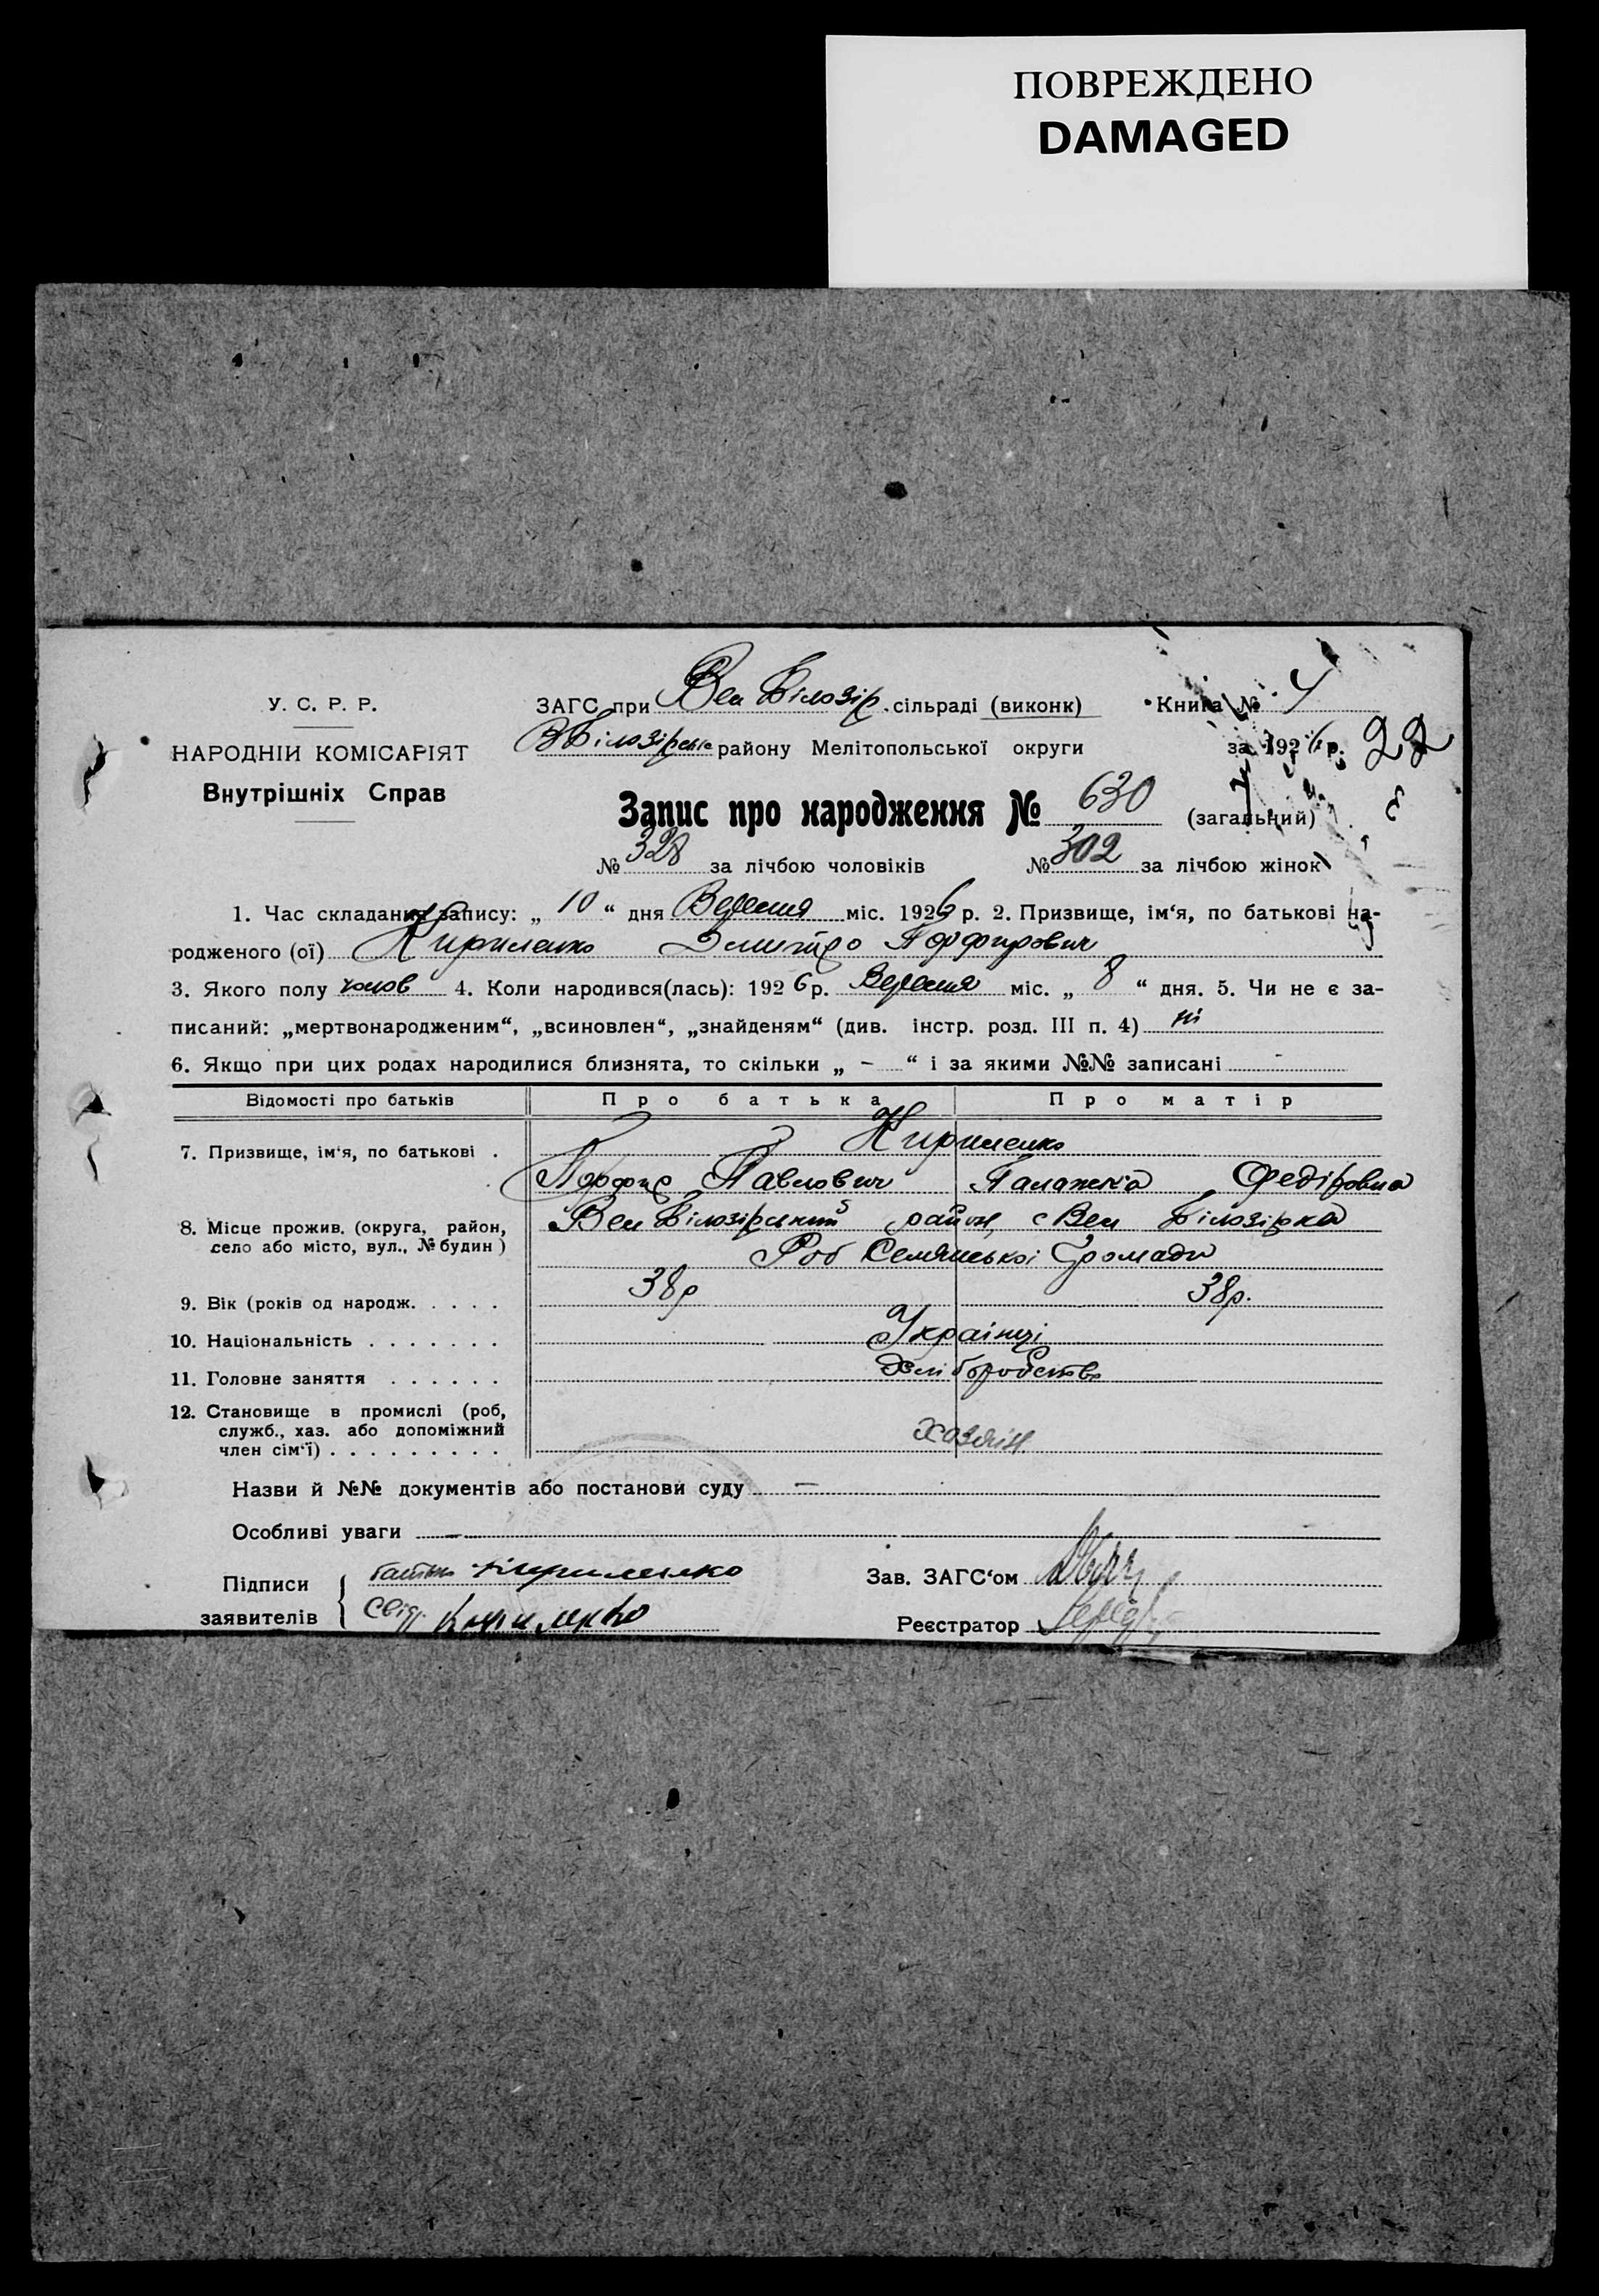 ПОВРЕЖДЕНО
DAMAGED
У. С. Р. Р.
НАРОДНІЙ КОМІСАРІЯТ
Внутрішніх Справ
ЗАГС при Вел Білозір. сільраді (виконк)
ВБілозірське району Мелітопольської округи
Книга № 4
за 1926 р. 22
Запис про народження № 630 (загальний)
№ 328 за лічбою чоловіків № 302 за лічбою жінок
1. Час складання запису: „ 10 “ дня Вересня міс. 1926 р. 2. Призвище, ім‘я, по батькові на-
родженого (ої) Кириленко Дмитро Порфирович
3. Якого полу чолов 4. Коли народився(лась): 1926 р. Вересня міс. „ 8 “ дня. 5. Чи не є за-
писаний: „мертвонародженим“, „всиновлен“, „знайденям“ (див. інстр. розд. III п. 4) ні
6. Якщо при цих родах народилися близнята, то скільки „ – “ і за якими №№ записані -
Відомості про батьків Про батька Про матір
7. Призвище, ім‘я, по батькові . Кириленко
Порфир Павлович Палажка Федіровна
8. Місце прожив. (округа, район, село або місто, вул., № будин) Вел Білозірський район, с Вел Білозірка
Громади
9. Вік (років од народж. . . . . 38р 38р.
10. Національність . . . . . . . Українці
11. Головне заняття . . . . . . Хліборобство
12. Становище в промислі (роб,
служб., хаз. або допоміжний
член сім‘ї) . . . . . . . . . хозяін
Назви й №№ документів або постанови суду –
Особливі уваги –
Підписи
заявителів
батько Кириленко
Свід. Кириленко
Зав. ЗАГС‘ом
Реєстратор